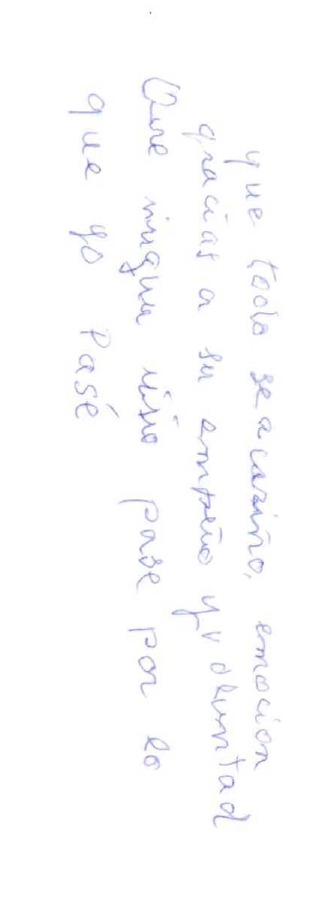 que todo sea cariño, emocion
gracias a su empeño y voluntad
Que ningun niño pase por lo
que yo Pasé